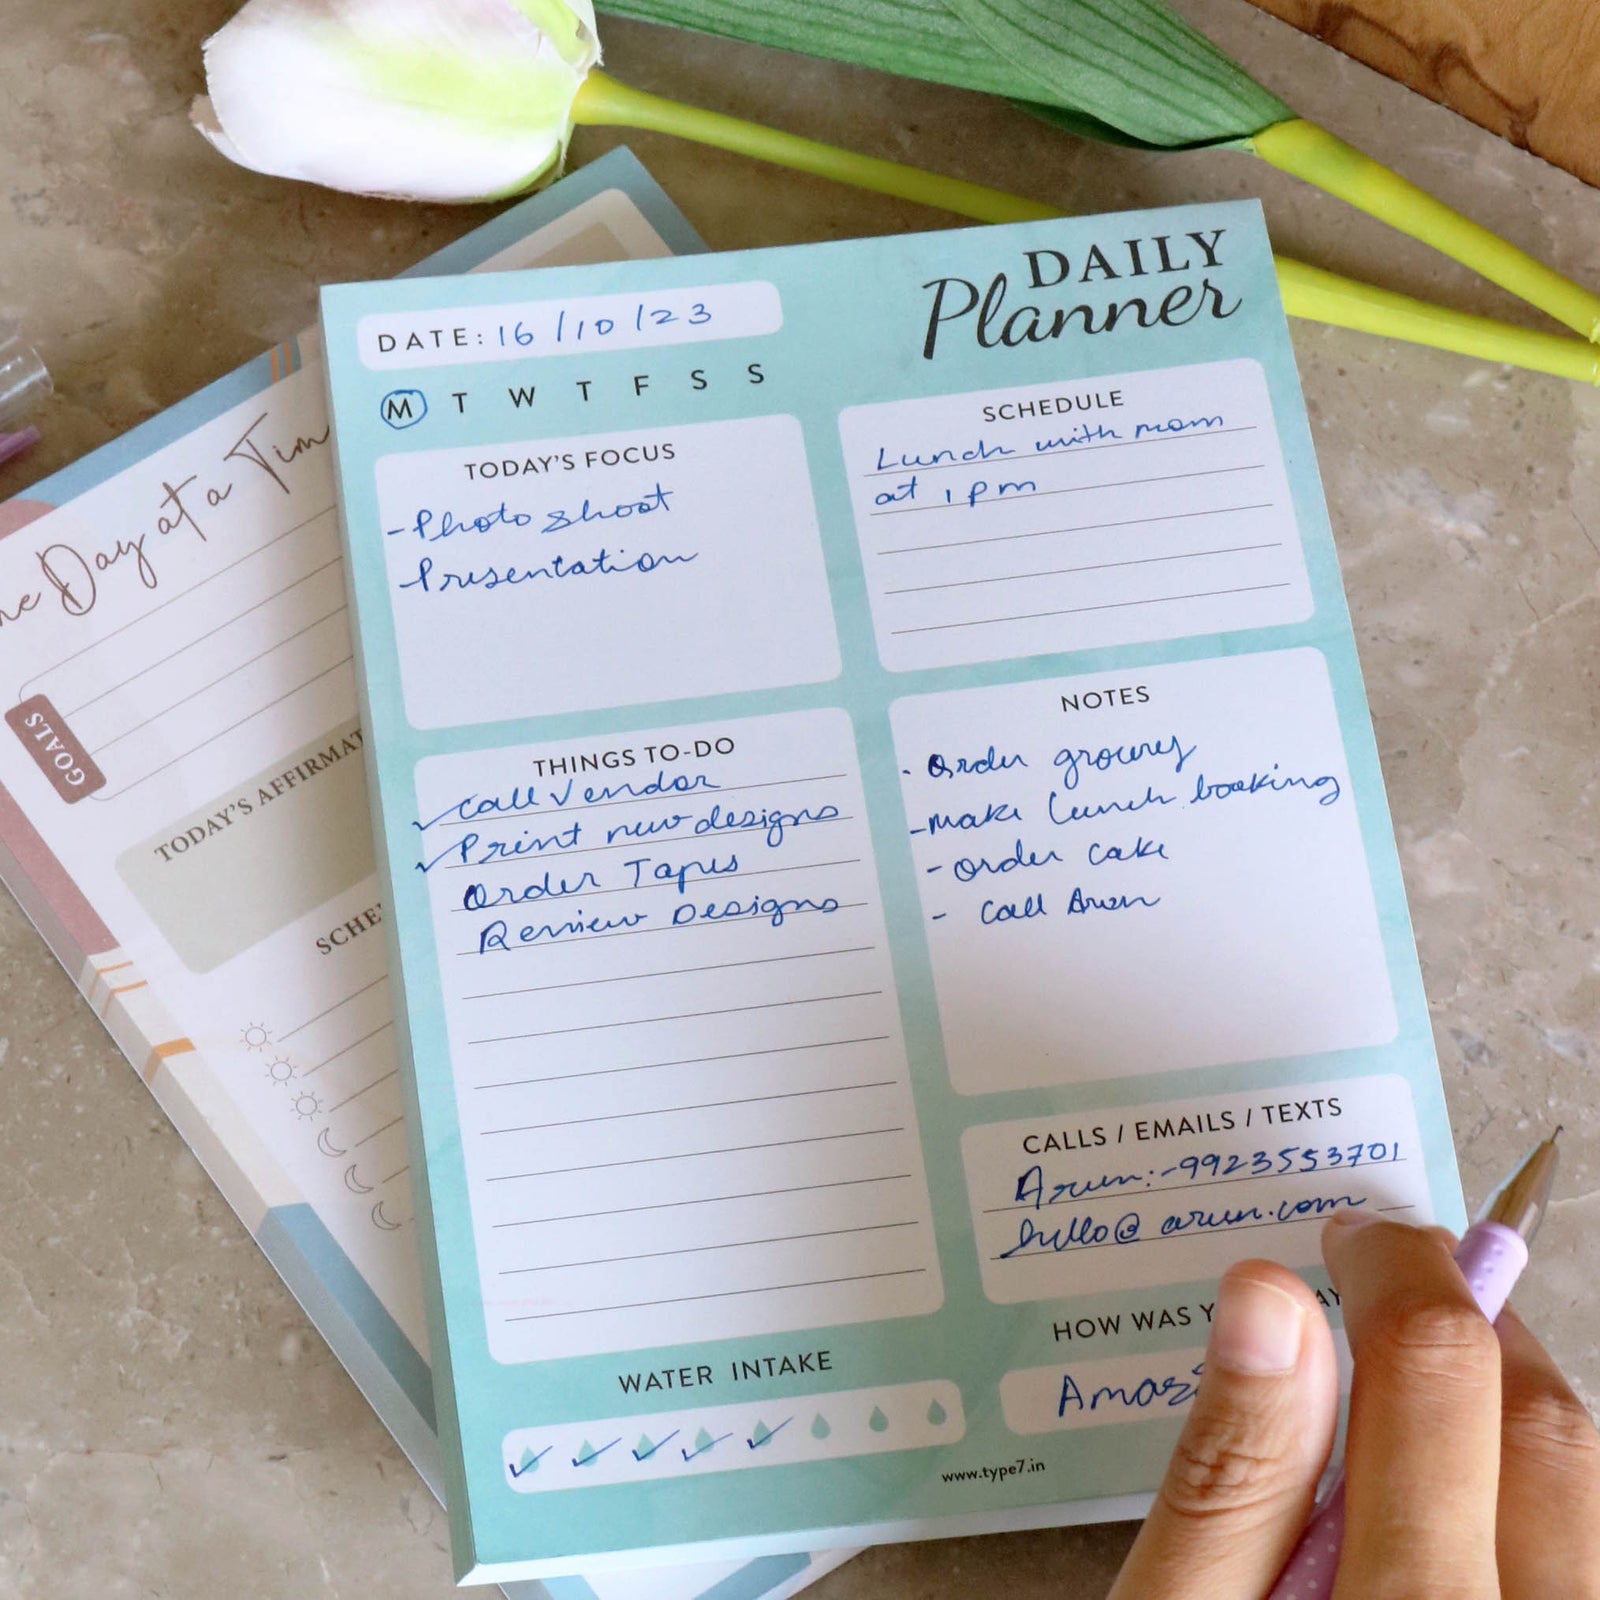 DAILY
Planner
DATE: 16/10/23
M T W T F S S
TODAY'S FOCUS
- Photo shoot
- Presentation
SCHEDULE
Lunch with mom
at 1 pm
THINGS TO-DO
✓ Call Vendor
✓ Print new designs
Order Tapes
Review Designs
NOTES
- Order grocery
- make lunch booking
- order cake
- Call Arun
CALLS / EMAILS / TEXTS
Arun:- 9923553701
hello@arun.com
WATER INTAKE
HOW WAS
www.type7.in
Day at a Tim
GOALS
TODAY'S AFFIRMAT
SCHE